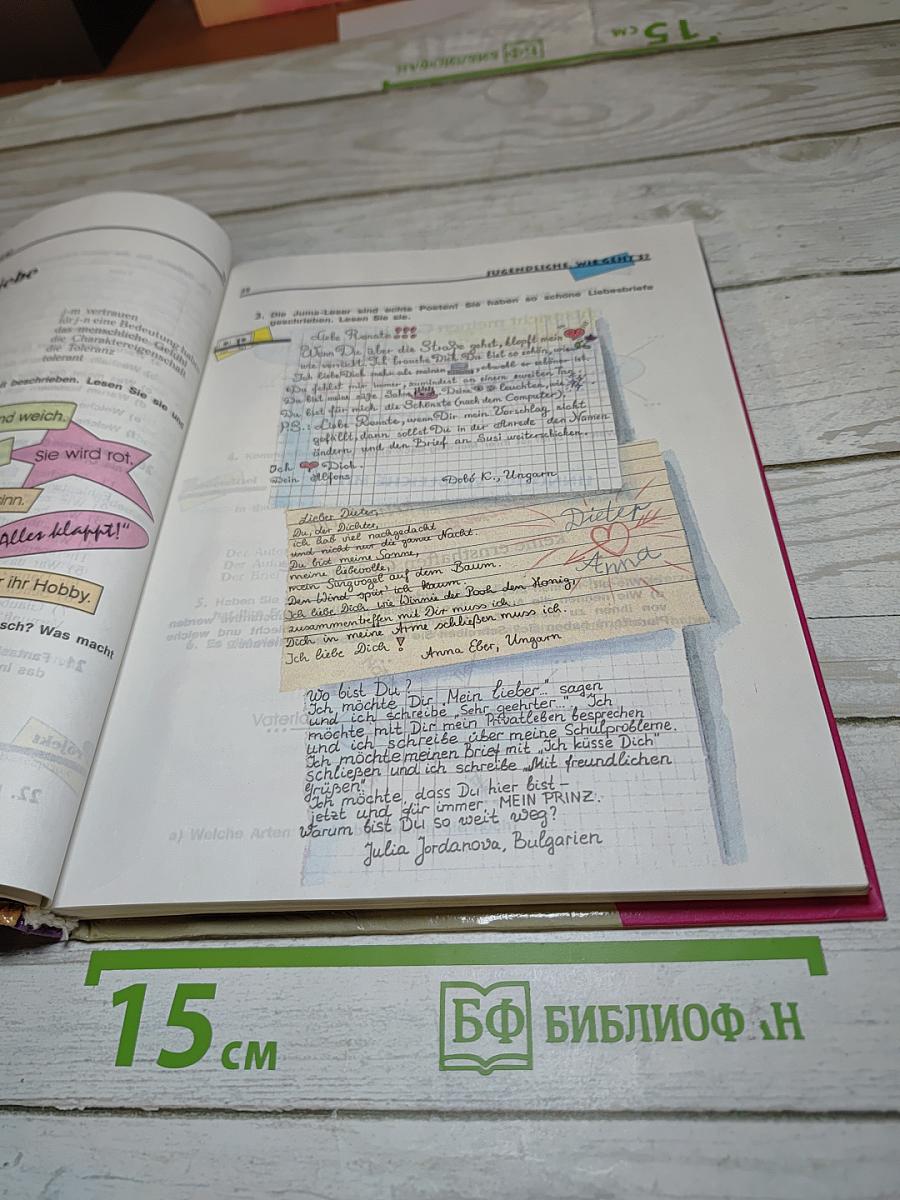 15 см
БФ
БИБЛИОФАН
iebe
j-m vertrauen
für j-n eine Bedeutung hab
das menschliche Gefühl
die Charaktereigenschaft
die Toleranz
tolerant
t beschrieben. Lesen Sie sie und
nd weich.
Sie wird rot.
inn.
Alles klappt!"
r ihr Hobby.
sch? Was macht
JUGENDLICHE, WIE GEHT'S?
3. Die Juma-Leser sind echte Poeten! Sie haben so schöne Liebesbriefe
geschrieben. Lesen Sie sie.
Liebe Renate!!!
Wenn Du über die Straße gehst, klopft mein
wie verrückt. Ich brauche Dich. Du bist so schön, wie
Ich liebe Dich mehr als meinen obwohl er schöner ist.
Du fehlst mir immer, zumindest an einem zweiten Tag.
Du bist meine süße Deine leuchten, wie
Du bist für mich die Schönste (nach dem Computer).
P.S.: Liebe Renate, wenn Dir mein Vorschlag nicht
gefällt, dann sollst Du in der Anrede den Namen
ändern und den Brief an Susi weiterschicken.
Ich Dich.
Dein Alfons
Dobó K., Ungarn
Lieber Dieter,
Du, der Dichter,
ich hab viel nachgedacht
und nicht nur die ganze Nacht.
Du bist meine Sonne,
meine liebevolle,
mein Singvogel auf dem Baum.
Den Wind spür ich kaum.
Ich liebe Dich wie Winnie der Pooh den Honig,
zusammentreffen mit Dir muss ich
Dich in meine Arme schließen muss ich.
Ich liebe Dich!
Anna Eber, Ungarn
Dieter
Anna
Wo bist Du?
Ich möchte Dir „Mein lieber..." sagen
und ich schreibe „Sehr geehrter...". Ich
möchte mit Dir mein Privatleben besprechen
und ich schreibe über meine Schulprobleme.
Ich möchte meinen Brief mit „Ich küsse Dich"
schließen und ich schreibe „Mit freundlichen
Grüßen".
Ich möchte, dass Du hier bist –
jetzt und für immer, MEIN PRINZ.
Warum bist Du so weit weg?
Julia Jordanova, Bulgarien
15 см
БФ
БИБЛИОФ Н